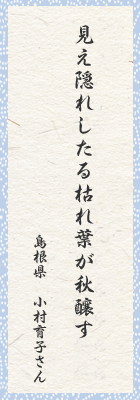 見え隠れしたる枯れ葉が秋醸す
島根県　小村育子さん